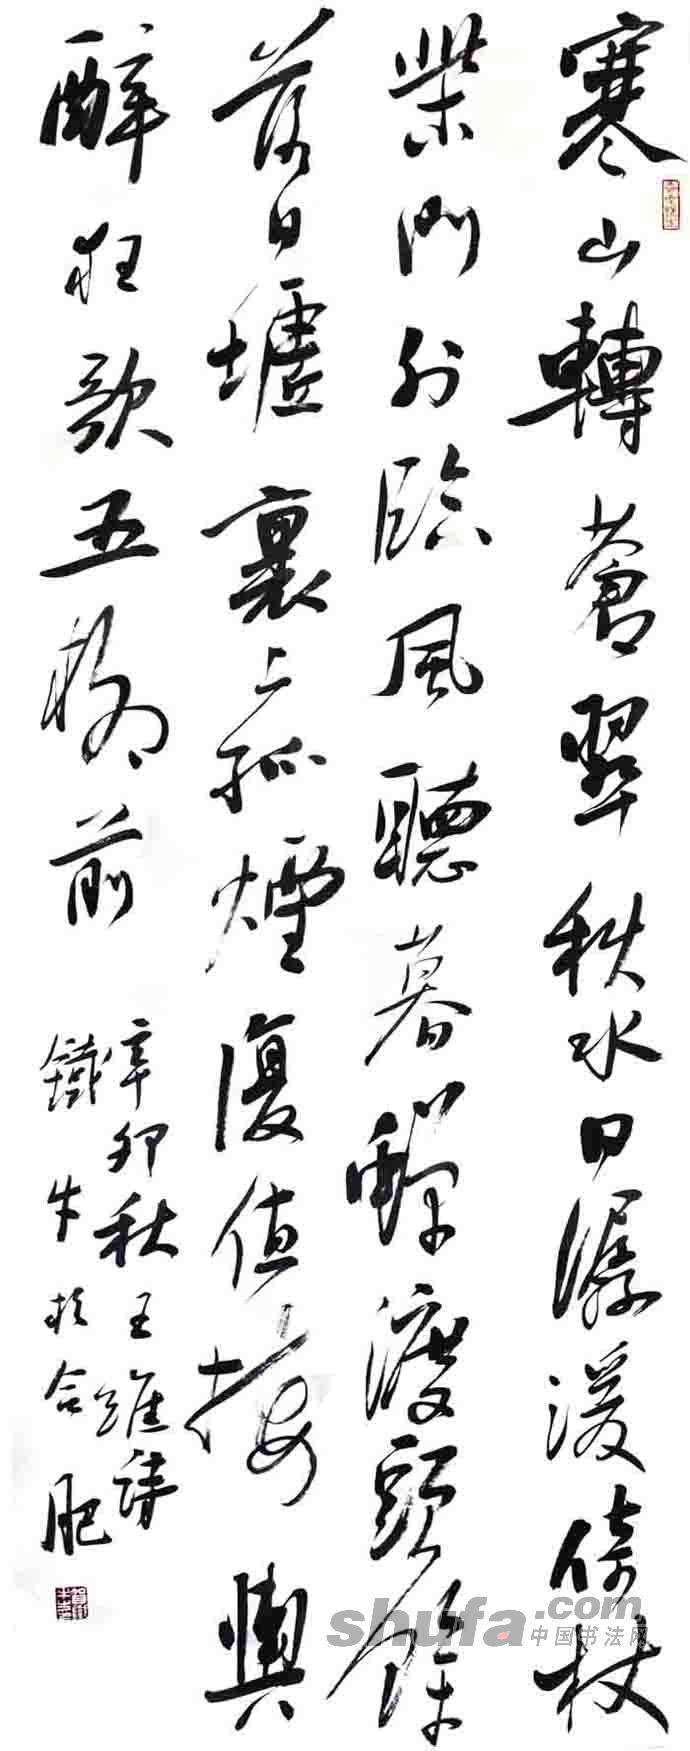 寒山轉蒼翠秋水日潺湲倚杖
柴門外臨風聽暮蟬渡頭餘
落日墟裏上孤煙復值接輿
醉狂歌五柳前
辛卯秋王維詩
鐵牛於合肥
shufa.com
中国书法网